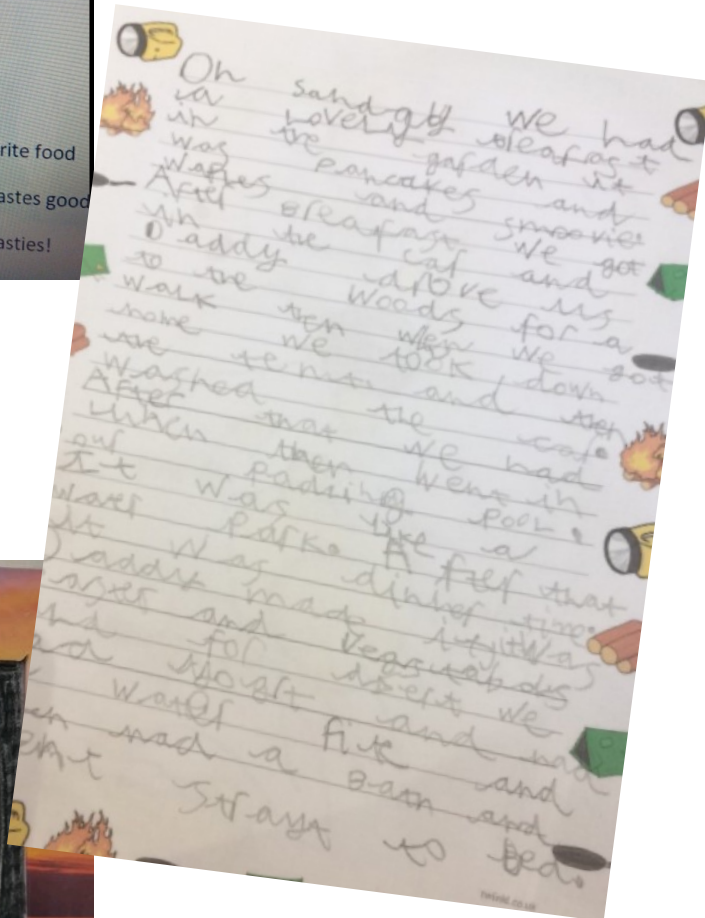 rite food
astes good
asties!
On sanday we had
a lovely breafast
in the garden it
was pancakes and
waffles and smoovies
After breafast we got
in the car and
Daddy drove us
to the woods for a
walk then when we got
home we took down
the tents and then
washed the car.
After that we had
lunch then went in
our padling pool.
It was like a
water park. After that
it was dinner time.
Daddy made it, it was
and vegetabols
for desert we
and had
water fite and
en had a bath and
ent strayt to bed.
twinkl.co.uk